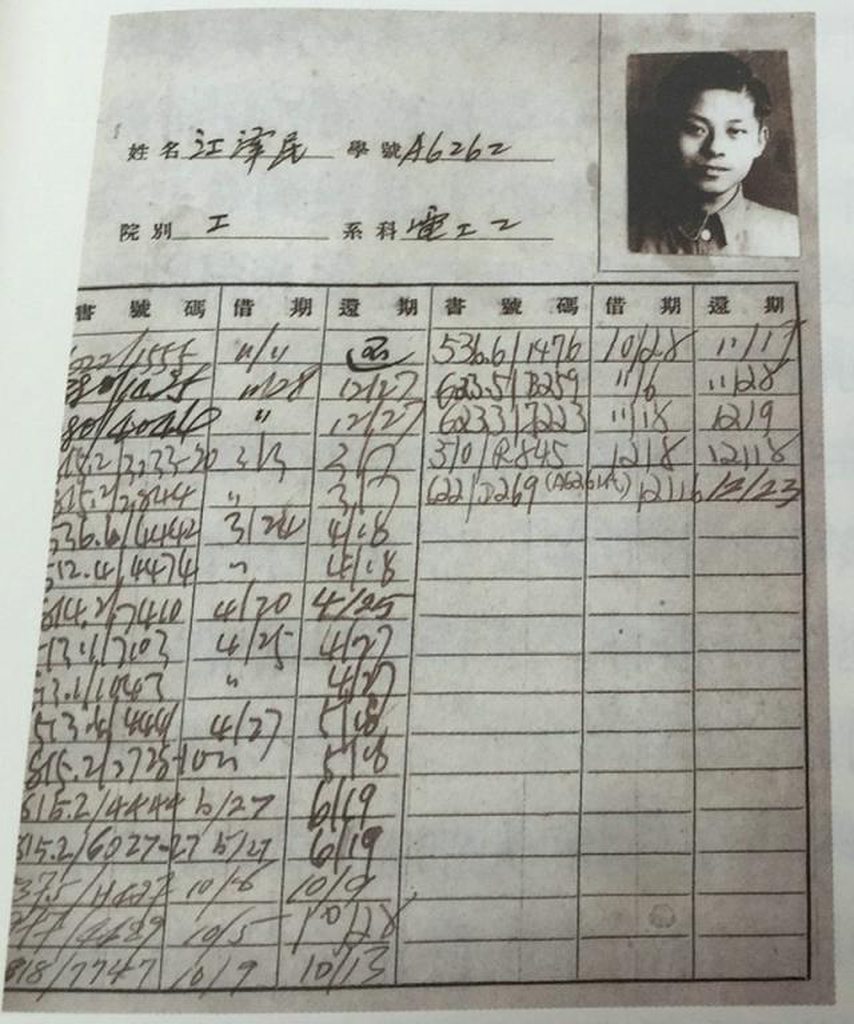 姓名 江澤民 學號 A6262
院別 工 系科 電工二
書號碼 借期 還期 書號碼 借期 還期
022/1555 11/11 还 536.6/1476 10/28 11/17
11/28 12/27 623.5/B259 11/6 11/28
80/4044.0 " 12/27 623.3/7223 11/18 12/9
3/3 3/7 310/R845 12/8 12/18
815.2/2844 " 3/7 622/D269 (A6261A) 12/16 12/23
536.6/4442 3/24 4/18
512.4/4474 " 4/18
814.2/7410 4/20 4/25
13.1/7103 4/25 4/27
13.1/1043 " 4/27
513.4/4441 4/27 5/18
815.2/2728-10 " 5/18
615.2/4444 5/27 6/19
815.2/6027-27 5/27 6/19
37.5/4427 10/5 10/9
10/5 10/28
818/7747 10/9 10/13